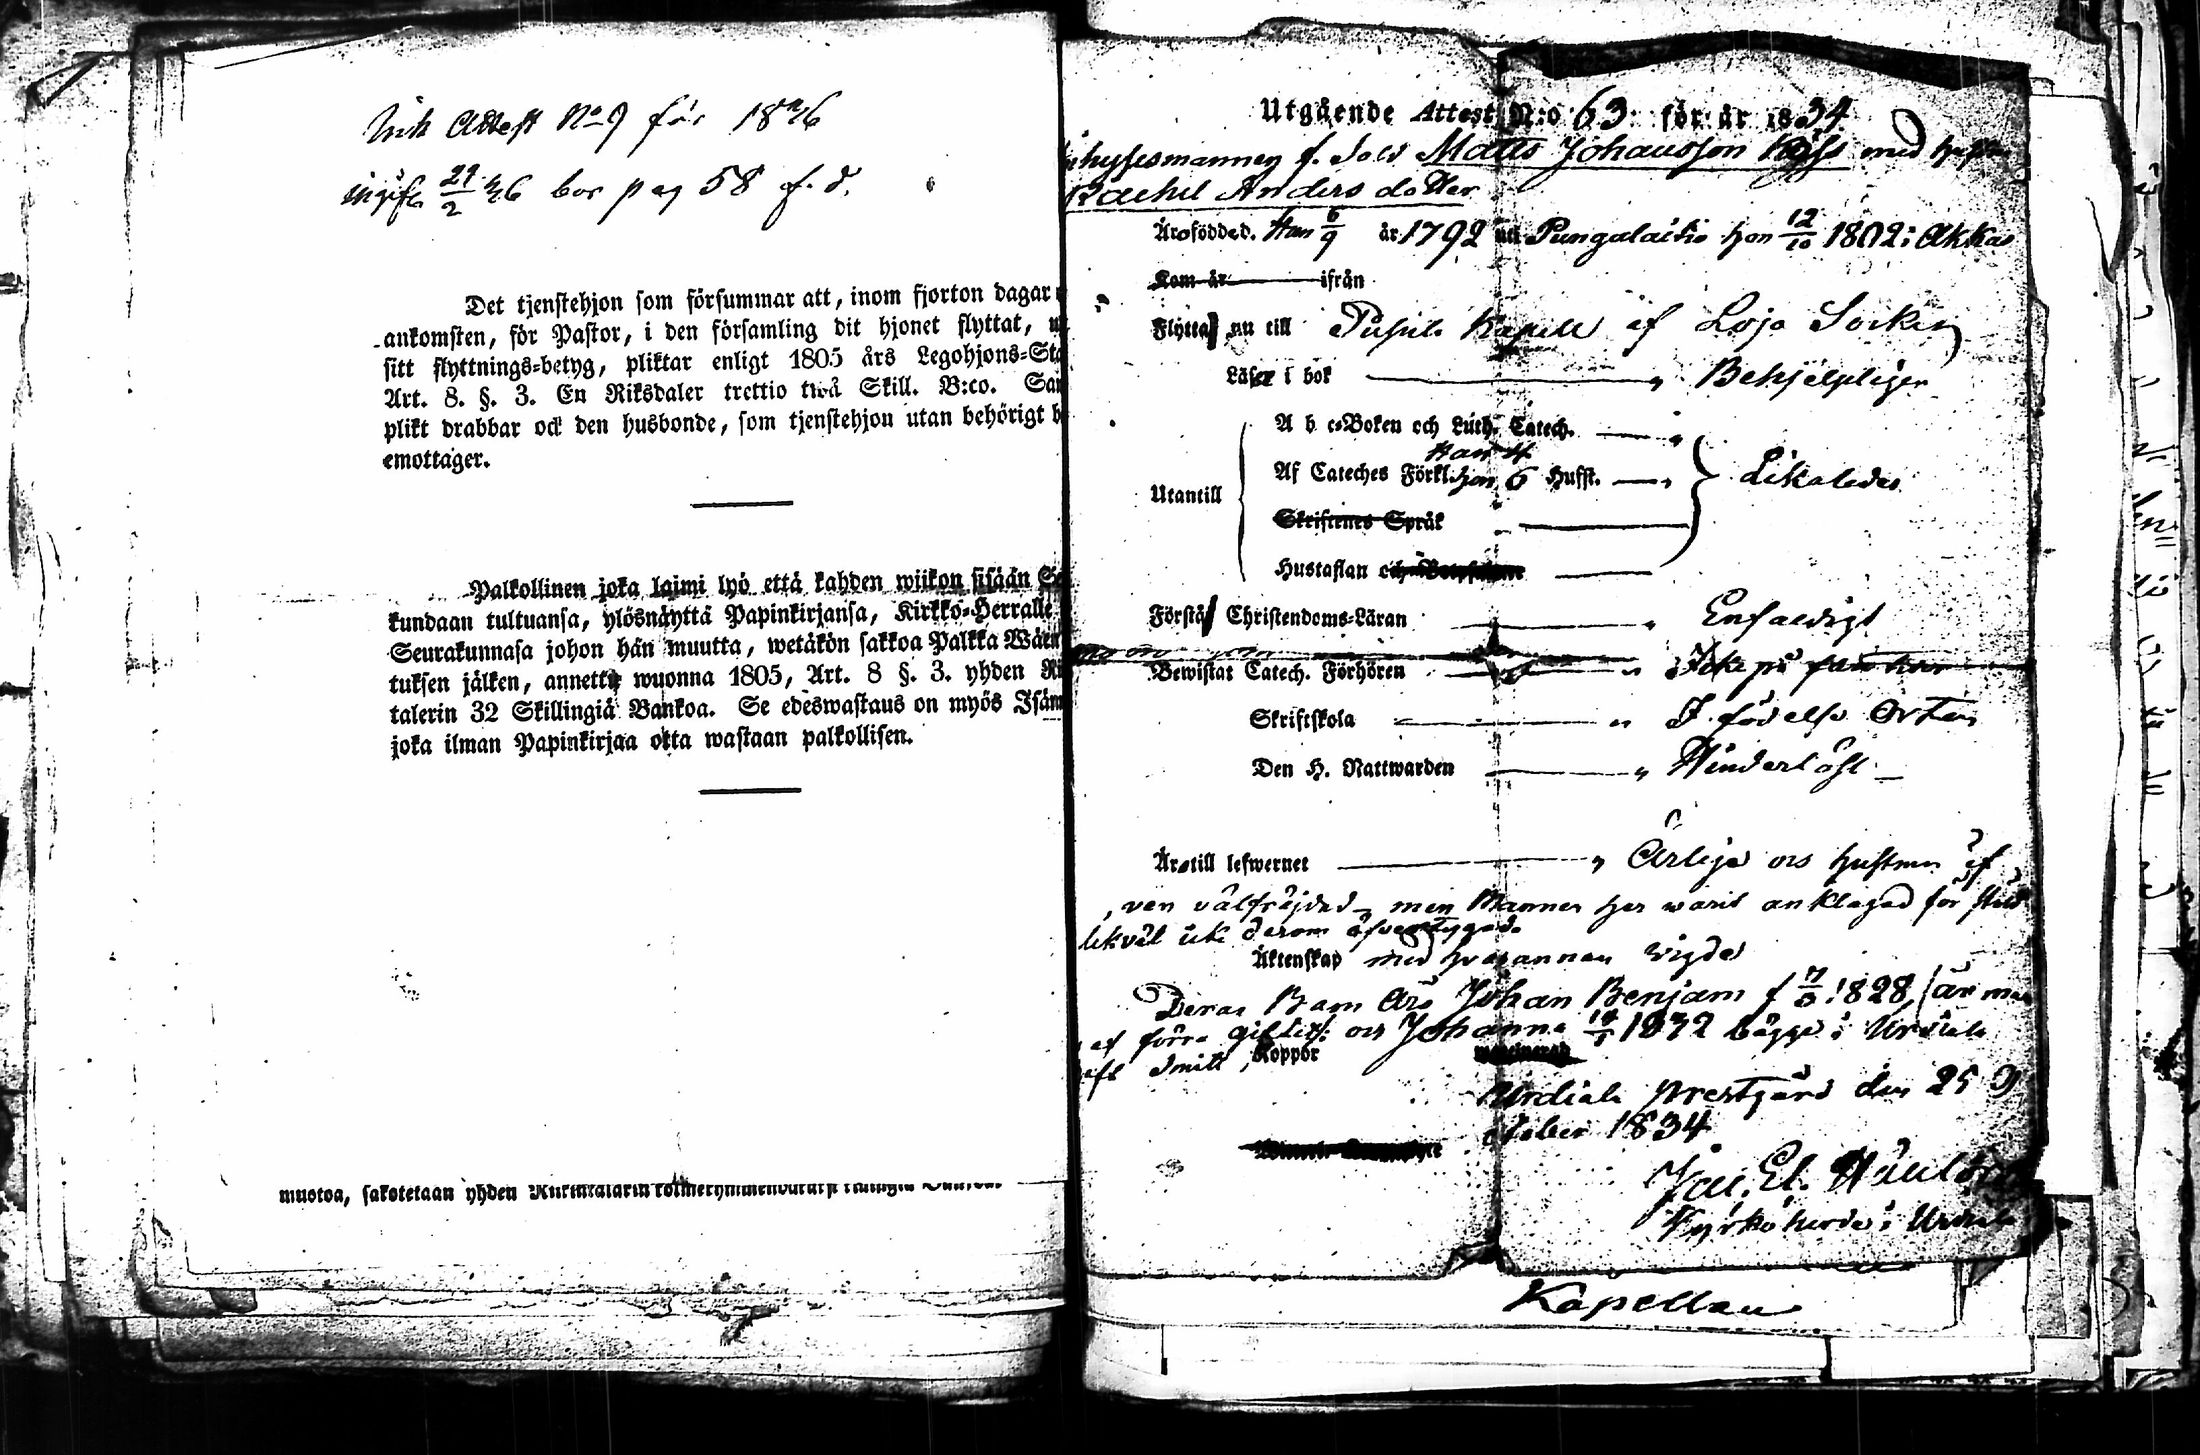 Attest No 9 för 1846
29/2 46 bor pag 58 f. d.
Det tjenstehjon som försummar att, inom fjorton dagar
ankomsten, för Pastor, i den församling dit hjonet flyttat,
sitt flyttnings-betyg, pliktar enligt 1805 års Legohjons-Sta
Art. 8. §. 3. En Riksdaler trettio två Skill. B:co. Sam
plikt drabbar ock den husbonde, som tjenstehjon utan behörigt b
emottager.
Palkollinen joka laimi lyö että kahden wiikon sisään Se
kundaan tultuansa, ylösnäyttä Papinkirjansa, Kirkko-Herralle
Seurakunnasa johon hän muutta, wetäkön sakkoa Palkka Wäen
tuksen jälken, annettu wuonna 1805, Art. 8 §. 3. yhden Ri
talerin 32 Skillingiä Bankoa. Se edeswastaus on myös Isän
joka ilman Papinkirjaa otta wastaan palkollisen.
muotoa, sakotetaan yhden
Utgående Attest N:o 63 för år 1834
hysesmannen f. Sold Matts Johansson med
Rachel Anders dotter
Äro födde d. Han 6/9 år 1792 uti Pungalaitio hon 12/10 1802 i Akkas
Kom år ifrån
Flytta nu till Pusula Kapell af Lojo Socken
Läsa i bok Behjelpligen
A b c-Boken och Luth. Catech.
Han 4
Af Cateches Förkl. hon 6 Hufst.
Utantill Likaledes
Skriftenes Språk
Hustaflan och
Förstå Christendoms-Läran Enfaldigt
Bewistat Catech. Förhören
Skriftskola I födelse Orten
Den H. Nattwarden Hinderlöst
Äro till lefwernet Ärlige och hustrun äf
ven välfräjdad, men Mannen har warit anklagad för
likväl icke derom öfvertygad
Äktenskap med hvarannan wigde
Deras Barn Äro Johan Benjam f 1828, (är
förra giftet) och Johanna 1832 bägge i Urdiala
Koppor
Urdiala Prestgård den 25 O
ctober 1834
Kyrkoherde i Urdiala
Kapellan